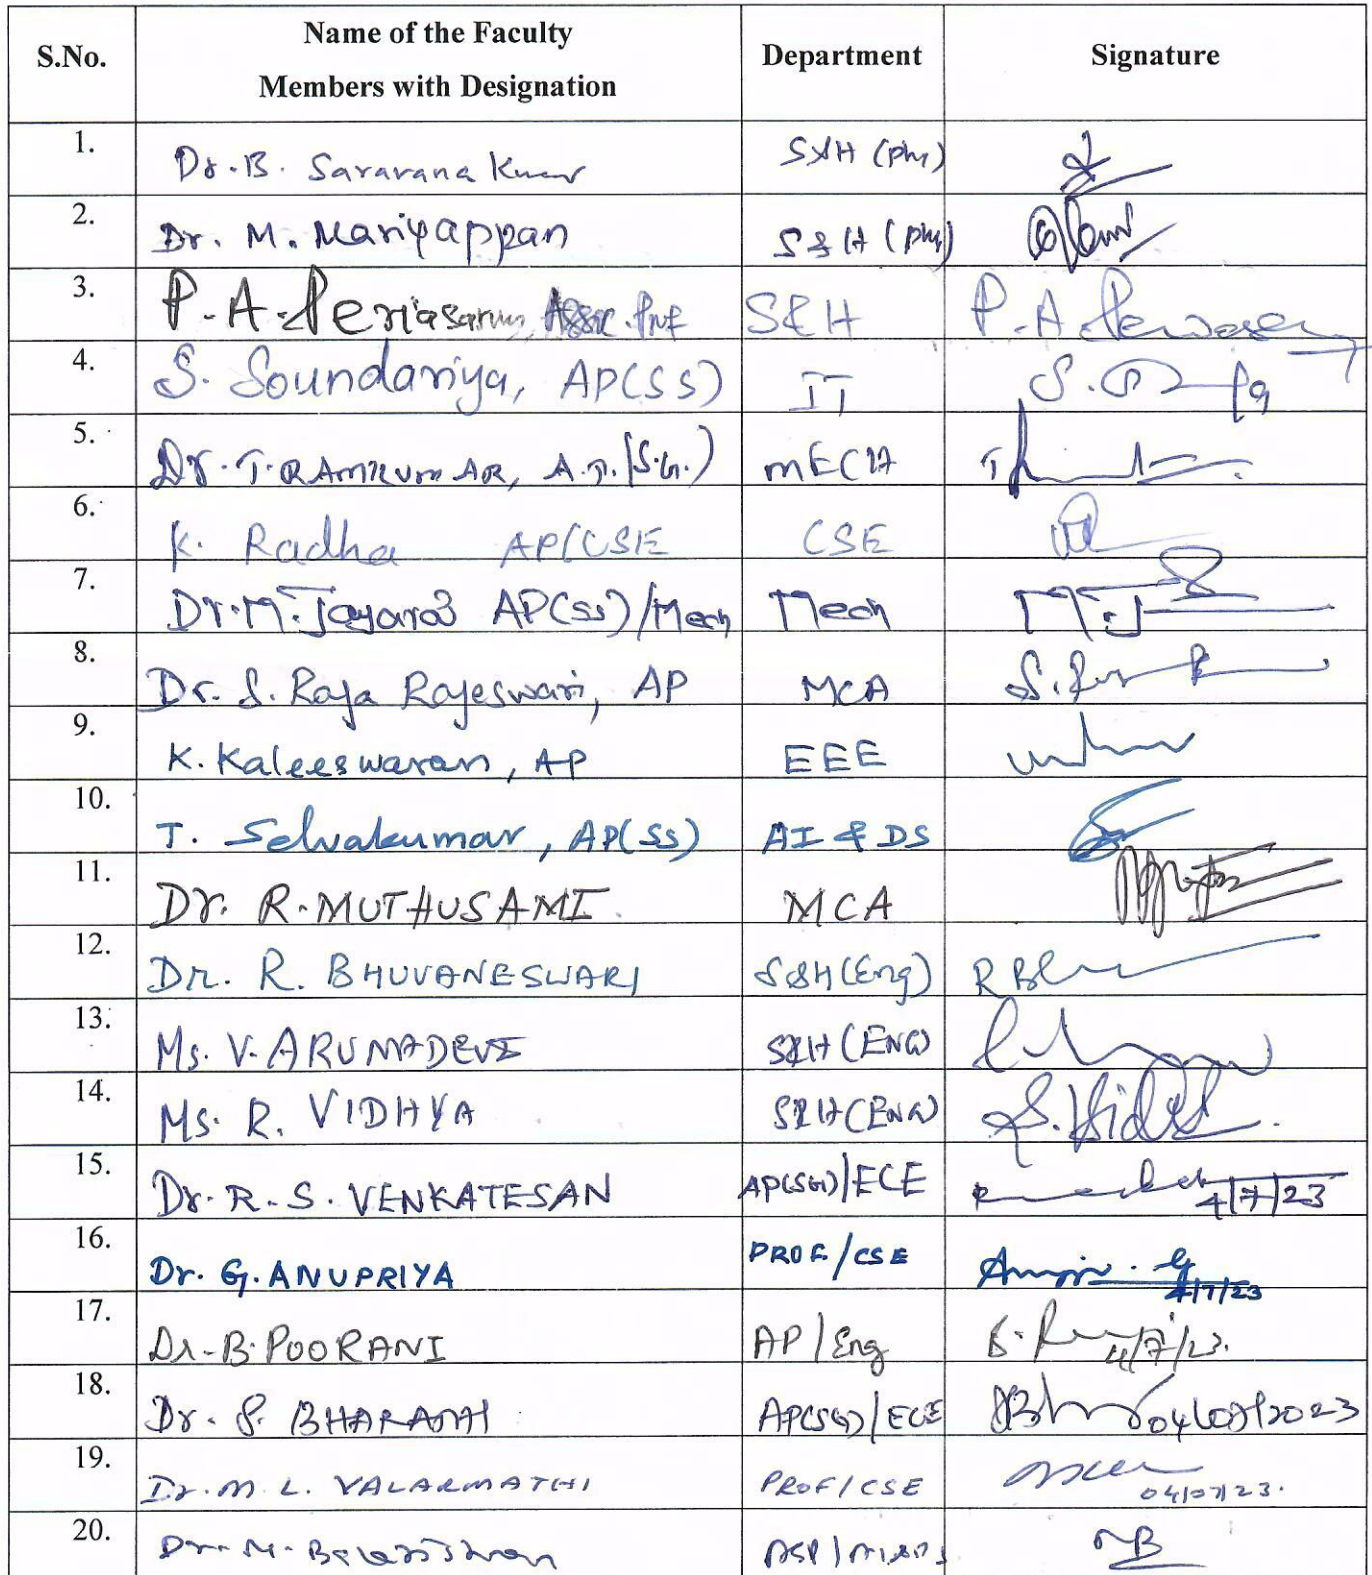 S.No. Name of the Faculty Members with Designation Department Signature
1. Dr.B. Saravana Kumar S&H (phy)
2. Dr. M. Mariyappan S&H (phy)
3. P.A. Periasamy, Assoc. Prof S&H P.A. Periasamy
4. S. Soundariya, AP(SS) IT
5. Dr. T. RAMKUMAR, A.P.(S.G.) MECH
6. K. Radha AP/CSE CSE
7. Dr. M. Jayaraj AP(SS)/Mech Mech M.J
8. Dr. S. Raja Rajeswari, AP MCA
9. K. Kaleeswaran, AP EEE
10. T. Selvakumar, AP(SS) AI & DS
11. Dr. R. MUTHUSAMI MCA
12. Dr. R. BHUVANESWARI S&H(Eng)
13. Ms. V. ARUNADEVI S&H(ENG)
14. Ms. R. VIDHYA S&H(ENG)
15. Dr. R. S. VENKATESAN AP(SG)/ECE 4/7/23
16. Dr. G. ANUPRIYA PROF/CSE 4/7/23
17. Dr. B. POORANI AP/Eng 4/7/23.
18. Dr. S. BHARATHI AP(SG)/ECE 04/07/2023
19. Dr. M. L. VALARMATHI PROF/CSE 04/07/23.
20. Dr. M. ASP/AI&DS MB